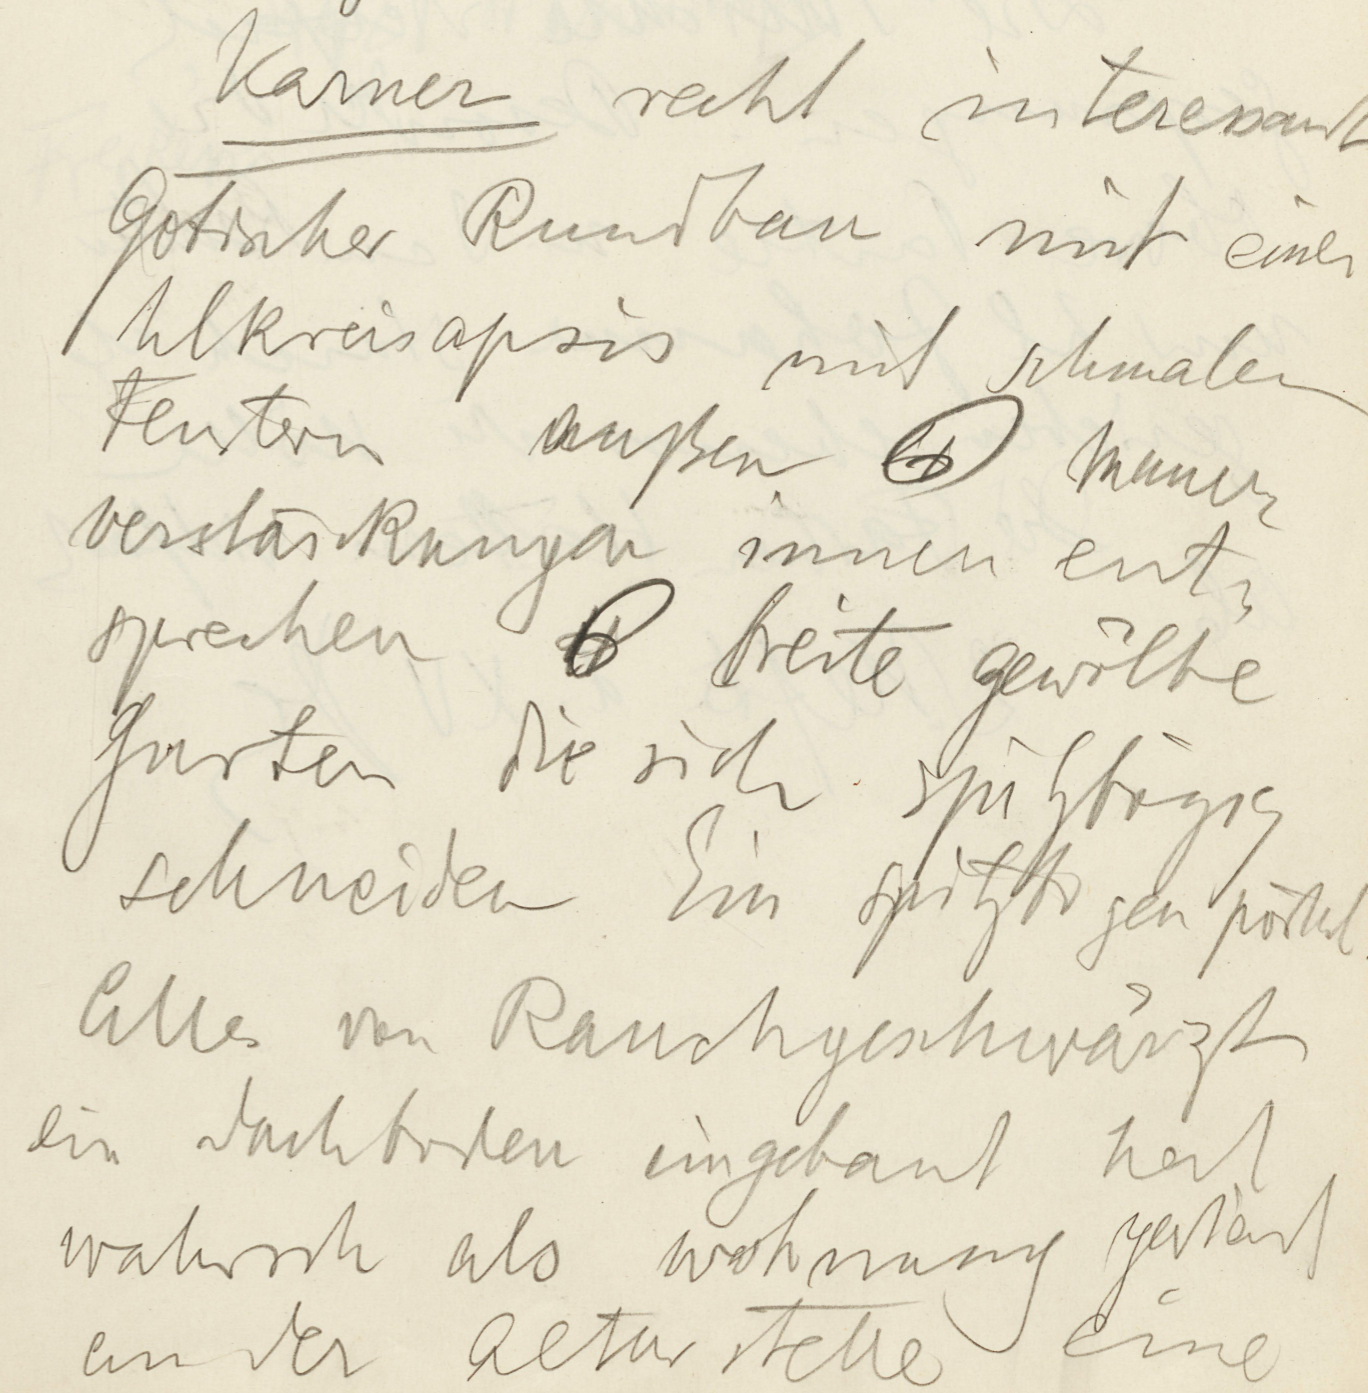 Karner recht interessant
Gotischer Rundbau mit einer
hlkreisapsis mit schmalen
Fenstern außen 4 Mauer
verstärkungen innen ent-
sprechen breite gewölbe
Gurten die sich spitzbogig
schneiden Ein spitzbogen portal.
Alles von Rauch geschwärzt
ein dachboden eingebaut hat
wahrsch als wohnung gedient
an der Altar stelle eine